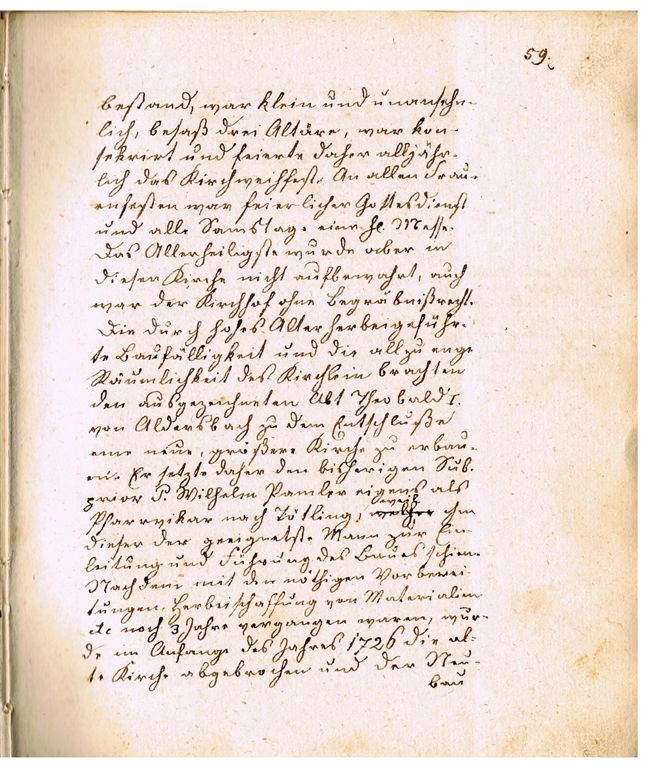 59.
bestand, war klein und unansehn-
lich, besaß drei Altäre, war kon-
sekrirt und feierte daher alljähr-
lich das Kirchweihfest. An allen Frau-
enfesten war feierlicher Gottesdienst
und alle Samstage eine hl. Messe.
Das Allerheiligste wurde aber in
dieser Kirche nicht aufbewahrt, auch
war der Kirchhof ohne Begräbnißrecht.
Die durch hohes Alter herbeigeführ-
te Baufälligkeit und die allzu enge
Räumlichkeit des Kirchlein brachten
den ausgezeichneten Abt Theobald I.
von Aldersbach zu dem Entschluße
eine neue, größere Kirche zu erbau-
en. Er setzte daher den bisherigen Sub-
prior P. Wilhelm Pamler eigens als
Pfarrvikar nach Tötling, weil ihm
dieser der geeignetste Mann zur Ein-
leitung und Führung des Baues schien.
Nachdem mit den nöthigen Vorberei-
tungen, Herbeischaffung von Materialien
etc noch 3 Jahre vergangen waren, wur-
de im Anfange des Jahres 1726 die al-
te Kirche abgebrochen und der Neu-
bau